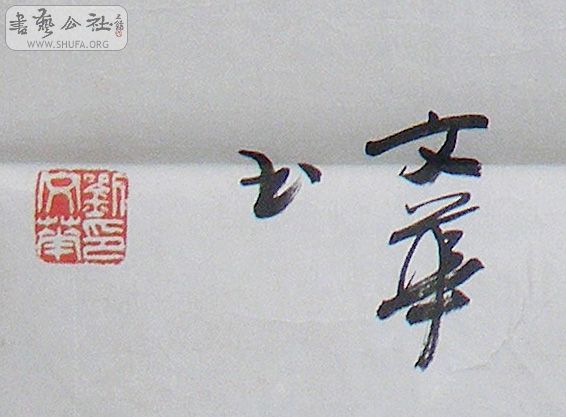 書藝公社
WWW.SHUFA.ORG
文華
书
劉印
文華